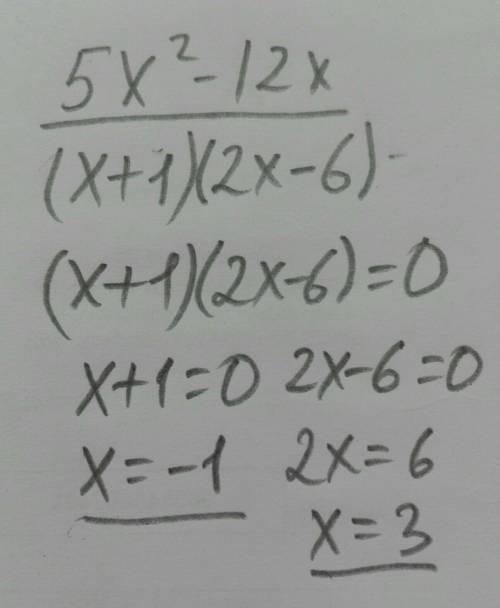 5x²-12x
(x+1)(2x-6)
(x+1)(2x-6)=0
x+1=0 2x-6=0
x=-1 2x=6
x=3